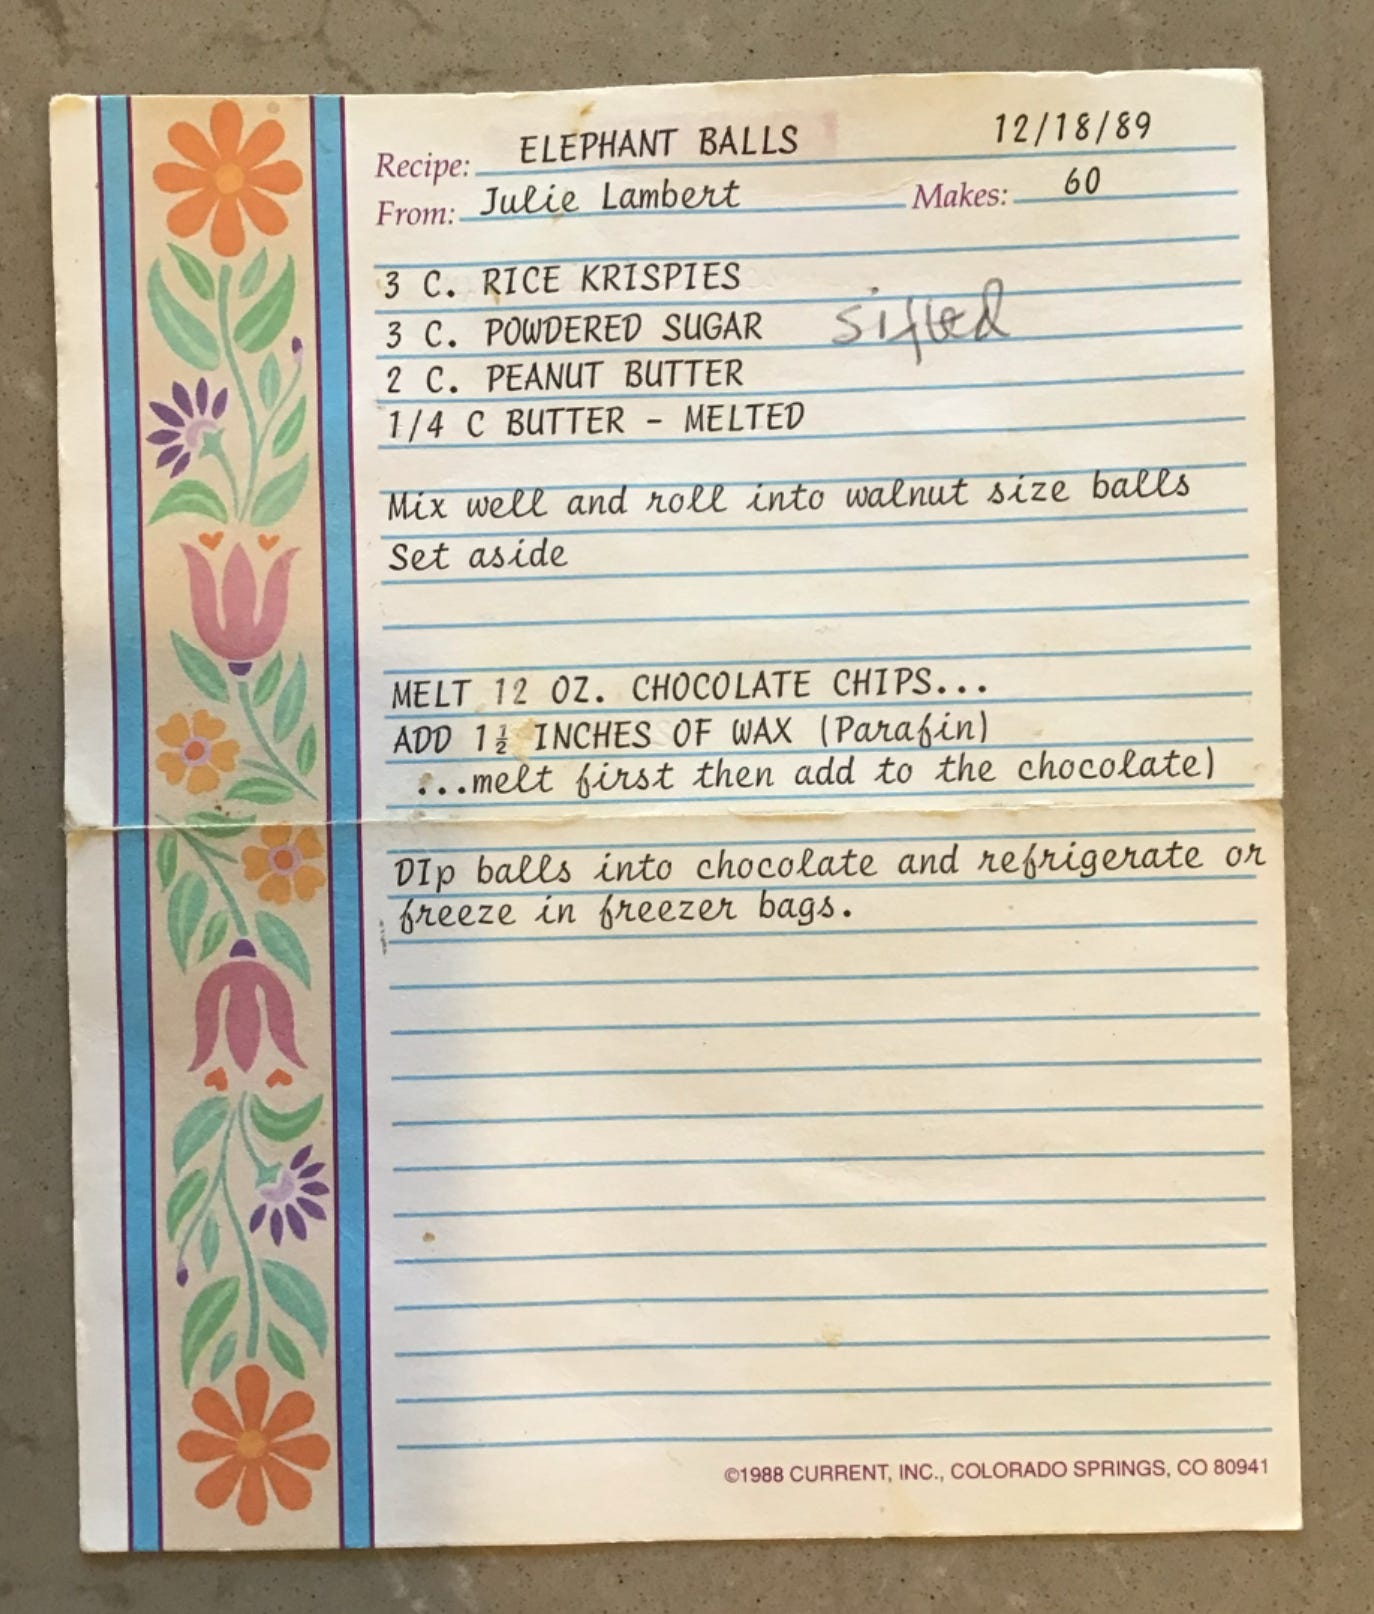 ELEPHANT BALLS 12/18/89
Recipe:
From: Julie Lambert Makes: 60
3 C. RICE KRISPIES
3 C. POWDERED SUGAR sifted
2 C. PEANUT BUTTER
1/4 C BUTTER - MELTED
Mix well and roll into walnut size balls
Set aside
MELT 12 OZ. CHOCOLATE CHIPS...
ADD 1½ INCHES OF WAX (Parafin)
...melt first then add to the chocolate)
DIp balls into chocolate and refrigerate or
freeze in freezer bags.
©1988 CURRENT, INC., COLORADO SPRINGS, CO 80941